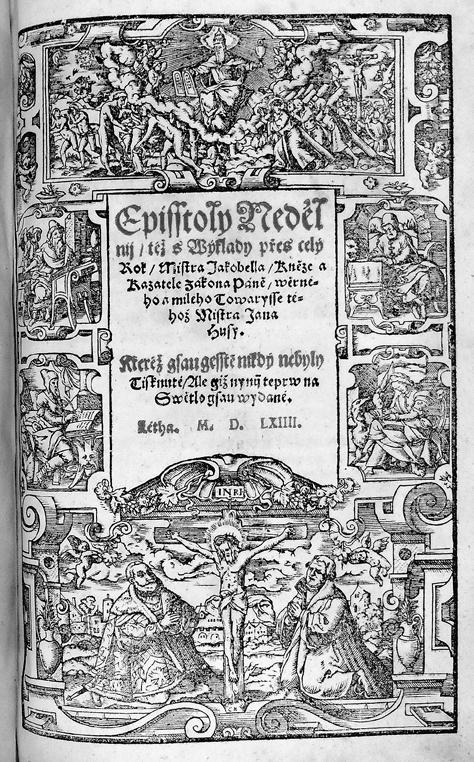 Episstoly Neděl
nij / též s Wýklady přes celý
Rok / Mistra Jakobella / Kněze a
Kazatele Zákona Páně / wěrné-
ho a mileho Towarysse té-
hož Mistra Jana
Husy.
Kteréž gsau gesstě nikdý nebyly
Tisknuté / Ale giž nynij teprw na
Swětlo gsau wydané.
Létha. M. D. LXIIII.
INRI